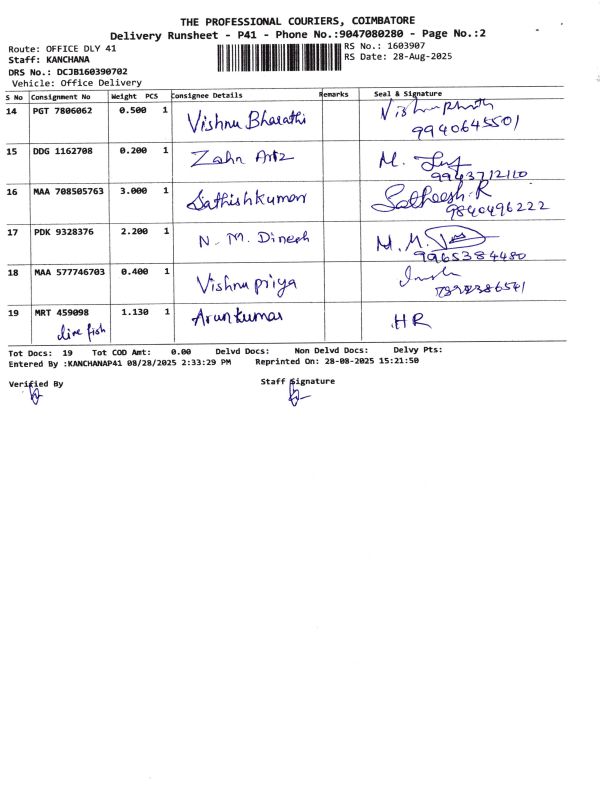 THE PROFESSIONAL COURIERS, COIMBATORE
Delivery Runsheet - P41 - Phone No.:9047080280 - Page No.:2
Route: OFFICE DLY 41
RS No.: 1603907
Staff: KANCHANA
RS Date: 28-Aug-2025
DRS No.: DCJB160390702
Vehicle: Office Delivery
S No Consignment No Weight PCS Consignee Details Remarks Seal & Signature
14 PGT 7806062 0.500 1 Vishnu Bharathi
9940645501
15 DDG 1162708 0.200 1 Zahn Artz M.
9943712110
16 MAA 708505763 3.000 1 Sathishkumar Satheesh.R
9840496222
17 PDK 9328376 2.200 1 N. M. Dinesh M.M.
9965384480
18 MAA 577746703 0.400 1 Vishnu priya
19 MRT 459098 1.130 1 Arunkumar HR
live fish
Tot Docs: 19 Tot COD Amt: 0.00 Delvd Docs: Non Delvd Docs: Delvy Pts:
Entered By :KANCHANAP41 08/28/2025 2:33:29 PM Reprinted On: 28-08-2025 15:21:50
Verified By Staff Signature